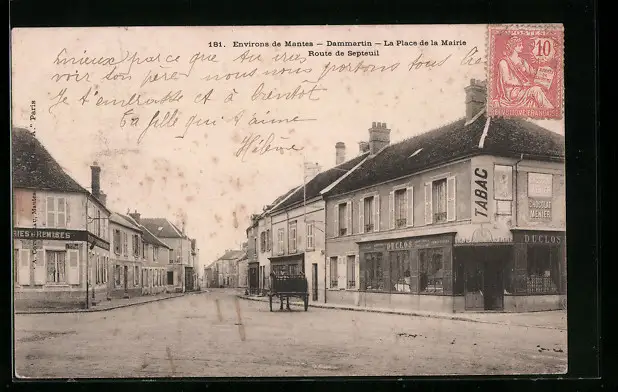 181. Environs de Mantes — Dammartin — La Place de la Mairie
Route de Septeuil
mieux parce que tu iras
voir ton père nous nous portons tous bien
Je t'embrasse et à bientôt
Ta fille qui t'aime
Hélène
POSTES
10
REPUBLIQUE FRANÇAISE
Paris
Mantes
REMISES
TABAC
CHOCOLAT
MENIER
DUCLOS
DUCLOS